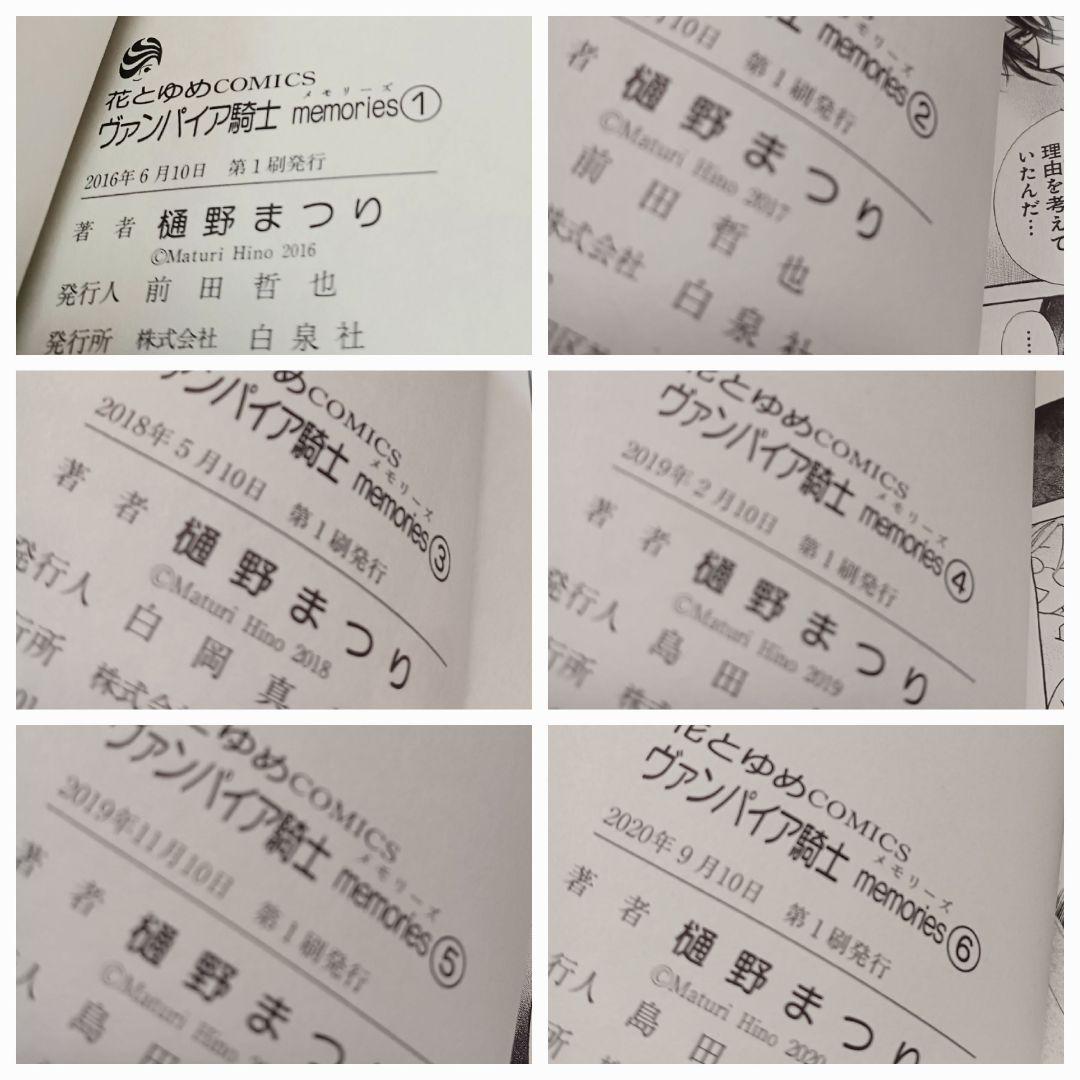 花とゆめCOMICS
メモリーズ
ヴァンパイア騎士 memories①
2016年6月10日 第1刷発行
著者 樋野まつり
©Maturi Hino 2016
発行人 前田哲也
発行所 株式会社 白泉社
メモリーズ
memories②
月10日 第1刷発行
者 樋野まつり
©Maturi Hino 2017
前田哲也
株式会社 白泉社
理由を考えて
いたんだ…
……
めCOMICS
メモリーズ
ヴァンパイア騎士 memories③
2018年5月10日 第1刷発行
著者 樋野まつり
©Maturi Hino 2018
発行人 白岡真
行所 株式会
01
花とゆめCOMICS
メモリーズ
ヴァンパイア騎士 memories④
2019年2月10日 第1刷発行
著者 樋野まつり
©Maturi Hino 2019
発行人 島田
行所 株式
とゆめCOMICS
メモリーズ
ヴァンパイア騎士 memories⑤
2019年11月10日 第1刷発行
著者 樋野まつ
©Maturi Hino
人 島田
花とゆめCOMICS
メモリーズ
ヴァンパイア騎士 memories⑥
2020年9月10日 第1刷発行
著者 樋野まつり
©Maturi Hino 2020
行人 島田
所